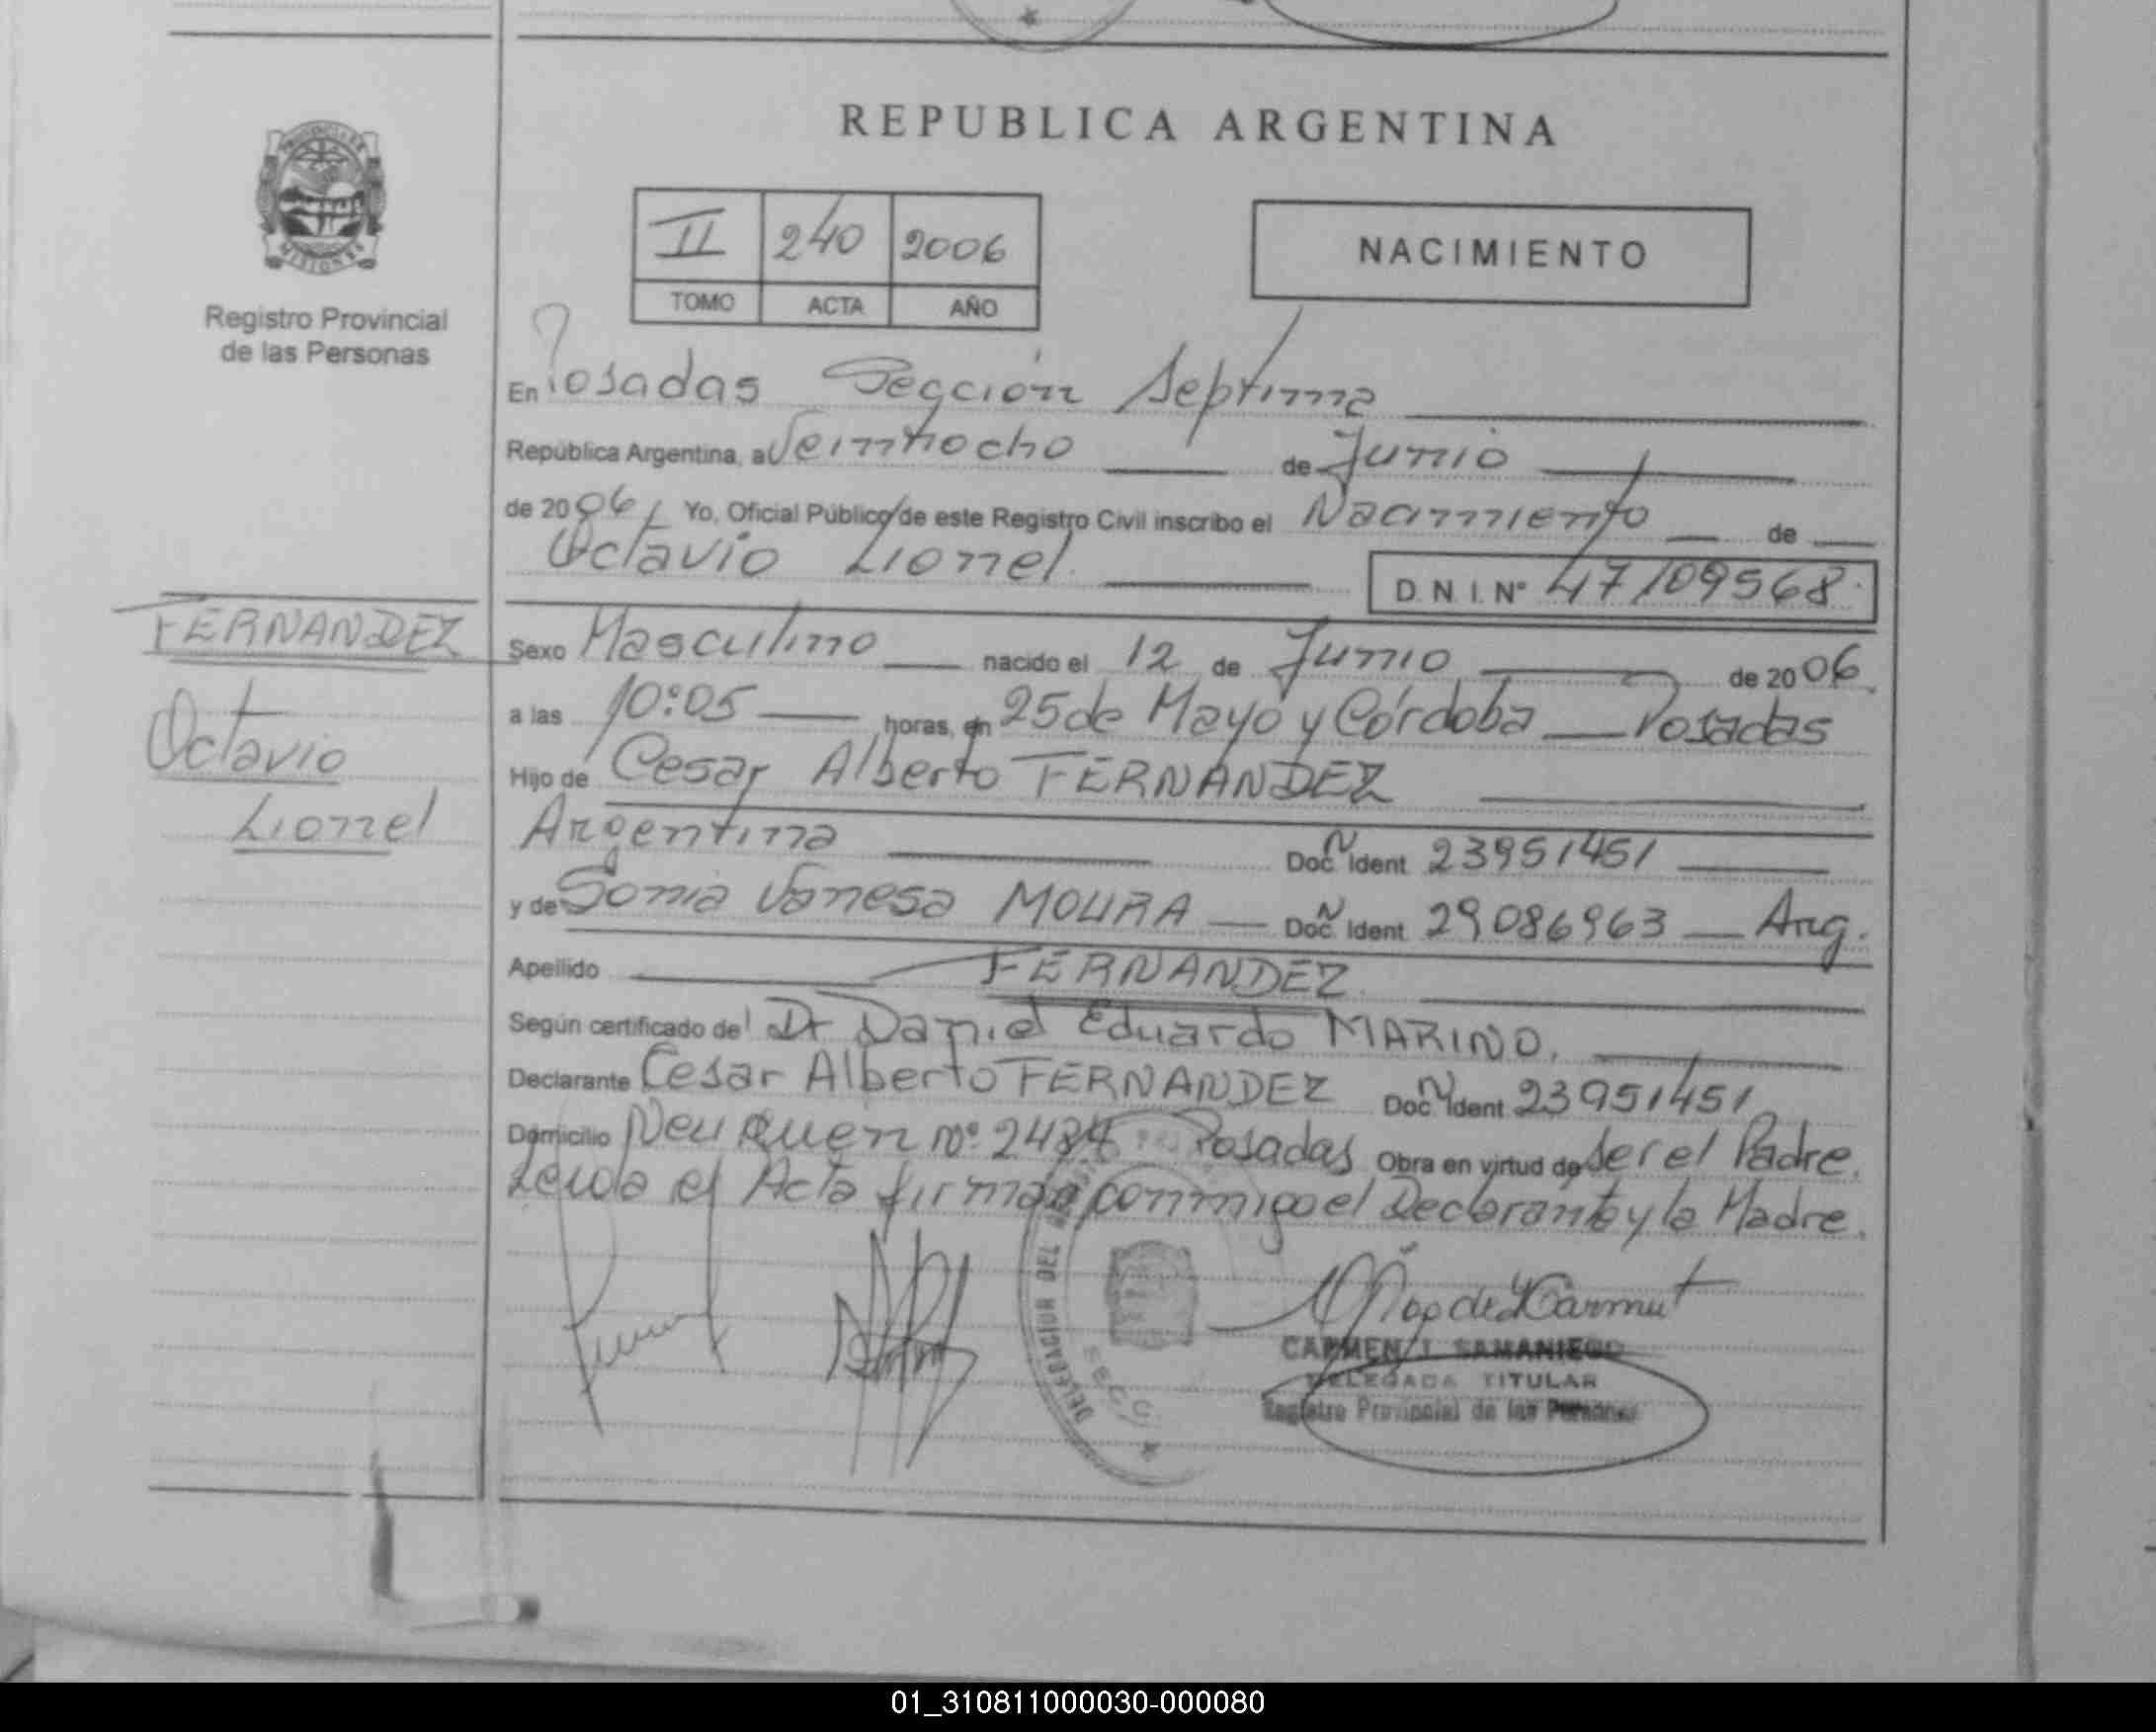 REPUBLICA ARGENTINA
PROVINCIA DE
MISIONES
Registro Provincial
de las Personas
II 240 2006
TOMO ACTA AÑO
NACIMIENTO
En Posadas Sección Septima
República Argentina, a Veintiocho de Junio
de 2006, Yo, Oficial Público de este Registro Civil inscribo el Nacimiento de
Octavio Lionel D.N.I. Nº 47109568
FERNANDEZ
Octavio
Lionel
Sexo Masculino nacido el 12 de Junio de 2006
a las 10:05 horas, en 25 de Mayo y Córdoba Posadas
Hijo de Cesar Alberto FERNANDEZ
Argentina Doc. Ident. 23951451
y de Sonia Vanesa MOURA Doc. Ident. 29086963 Arg.
Apellido FERNANDEZ
Según certificado del Dr Daniel Eduardo MARINO.
Declarante Cesar Alberto FERNANDEZ Doc. Ident. 23951451
Domicilio Neuquen Nº 2484 Posadas Obra en virtud de ser el Padre.
Leida el Acta firman conmigo el Declarante y la Madre.
DELEGACION DEL
SECC.
CARMEN I. SAMANIEGO
DELEGADA TITULAR
Registro Provincial de las Personas
01_310811000030-000080